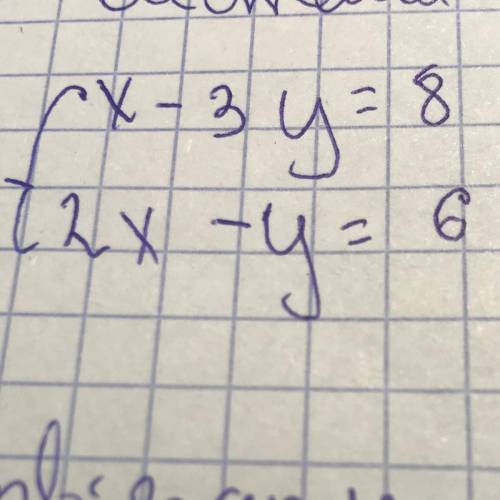 x - 3y = 8
2x - y = 6